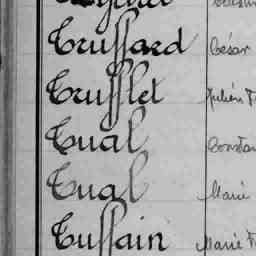 Trussard César
Trufflet Julien F
Tual Constan
Tual Marie
Tussain Marie F